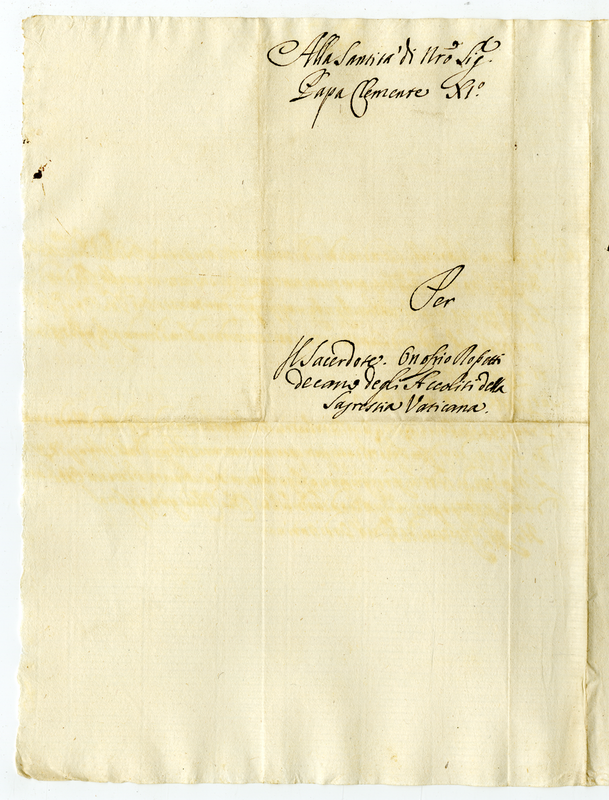 Alla Santità di Nro Sig.re
Papa Clemente XI.°
Per
Il Sacerdote. Onofrio
Decano degli Accoliti della
Sagrestia Vaticana.